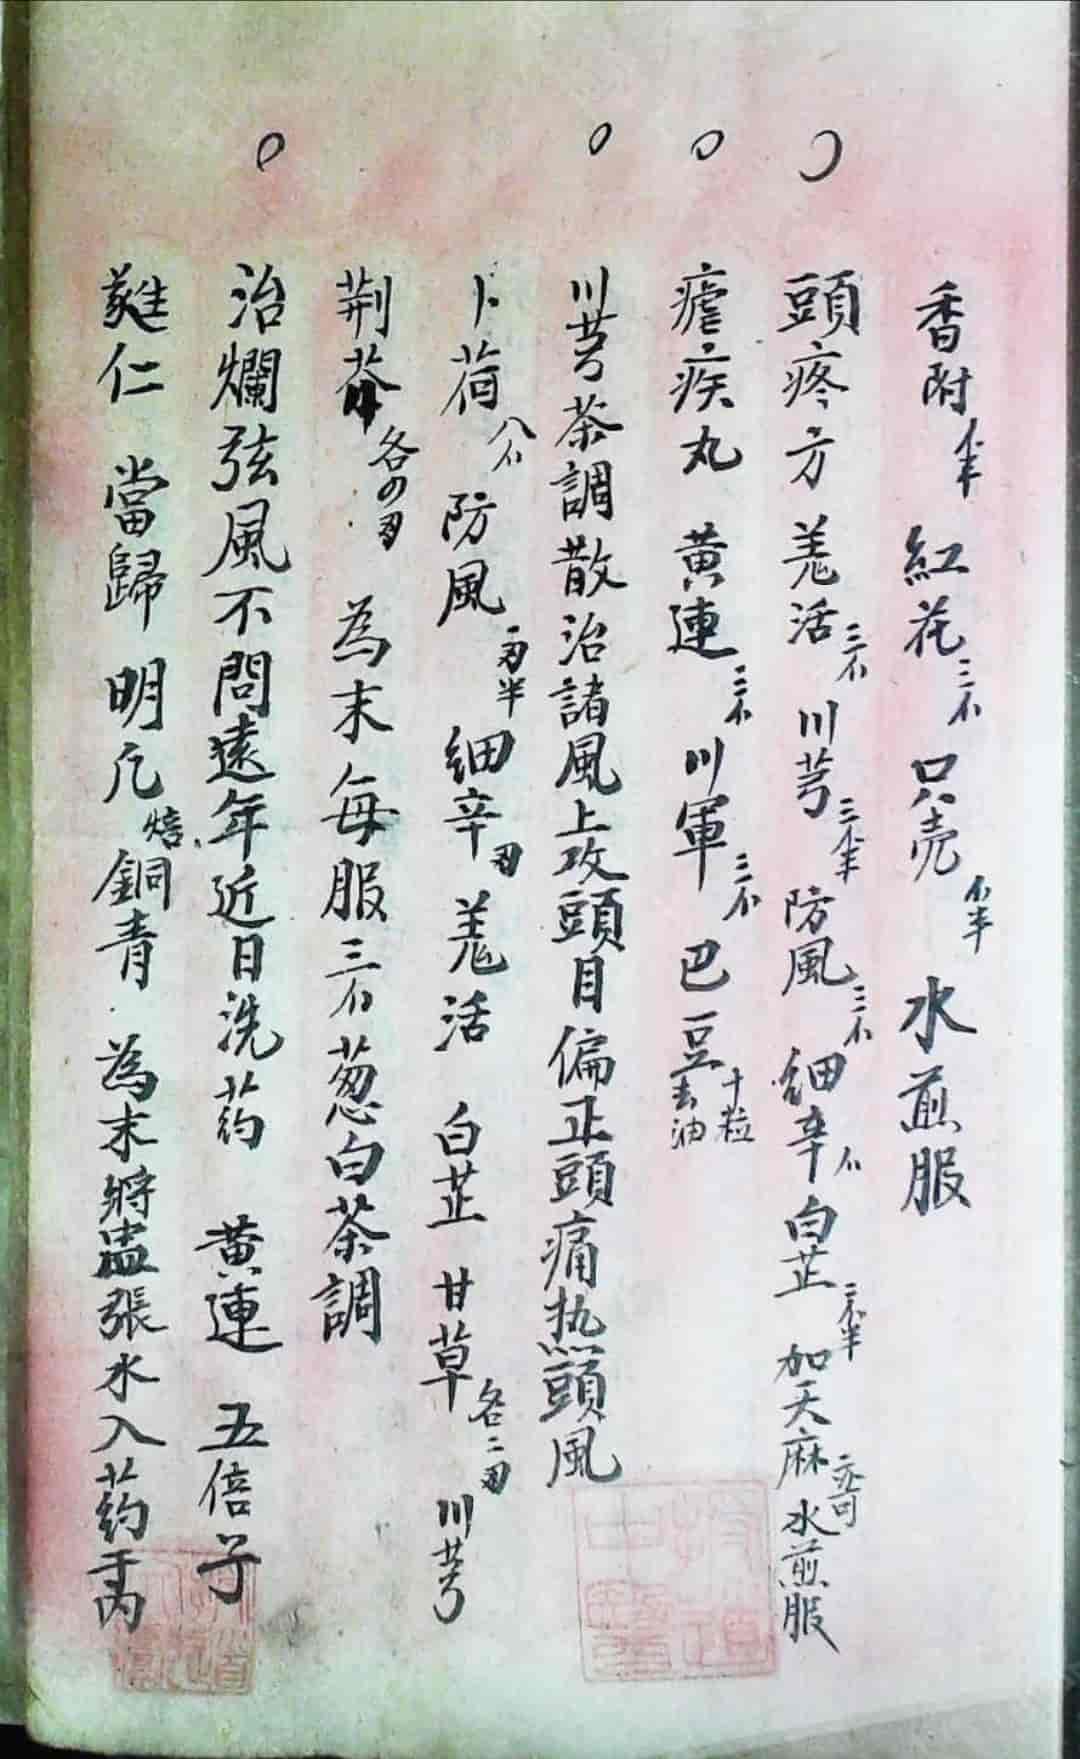 香附 半 紅花 三 只壳 半 水煎服
頭疼方 羌活 三 川芎 三 半 防風 三 細辛 白芷 二 半 加天麻 亦可 水煎服
瘧疾丸 黃連 三 川軍 三 巴豆 十粒 去油
川芎茶調散治諸風上攻頭目偏正頭痛热頭風
卜荷 八 防風 半 細辛 羌活 白芷 甘草 各二 川芎
荆芥 各 為末每服三 葱白茶調
治爛弦風不問遠年近日洗药 黃連 五倍子
蕤仁 當歸 明 焙 銅青 為末將 張水入药于内